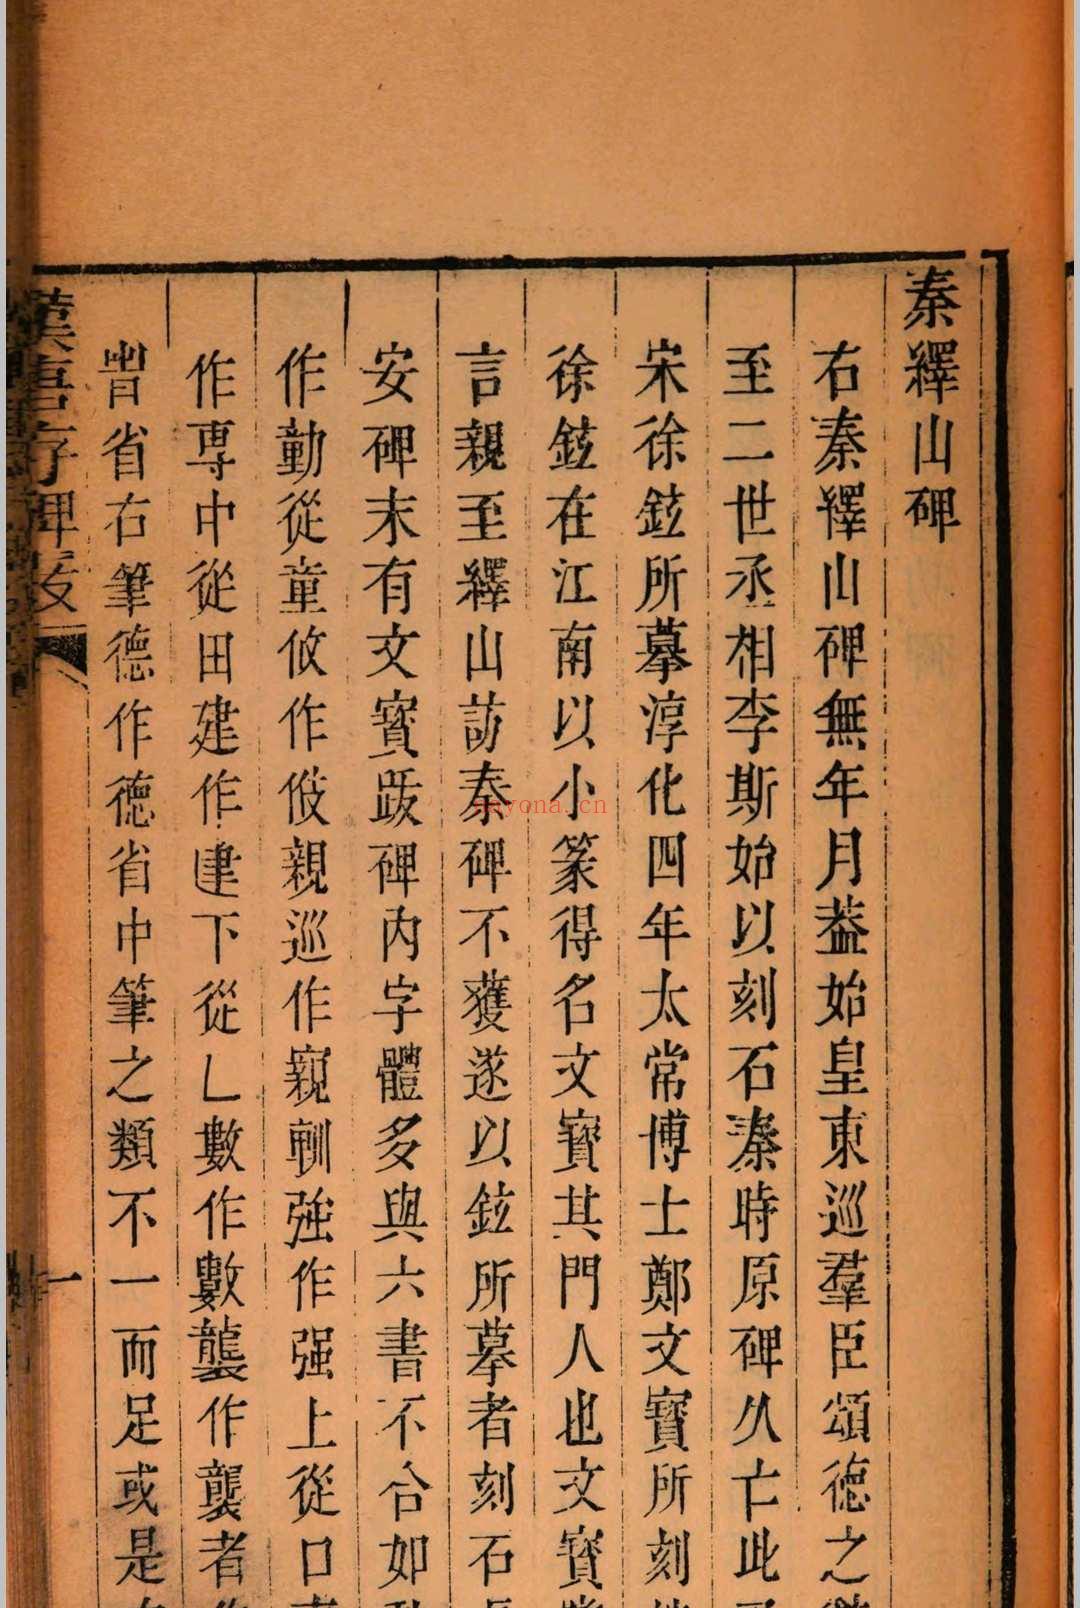 秦繹山碑
右秦繹山碑無年月葢始皇東巡羣臣頌德之
至二世丞相李斯始以刻石秦時原碑久亡此
宋徐鉉所摹淳化四年太常博士鄭文寶所刻
徐鉉在江南以小篆得名文寶其門人也文寶
言親至繹山訪秦碑不獲遂以鉉所摹者刻石
安碑末有文寶跋碑內字體多與六書不合如
作動從童攸作伎親巡作寴輁強作强上從口
作専中從田建作建下從乚數作數襲作襲者
省右筆德作德省中筆之類不一而足或是
漢唐存碑跋
一
nayona.cn